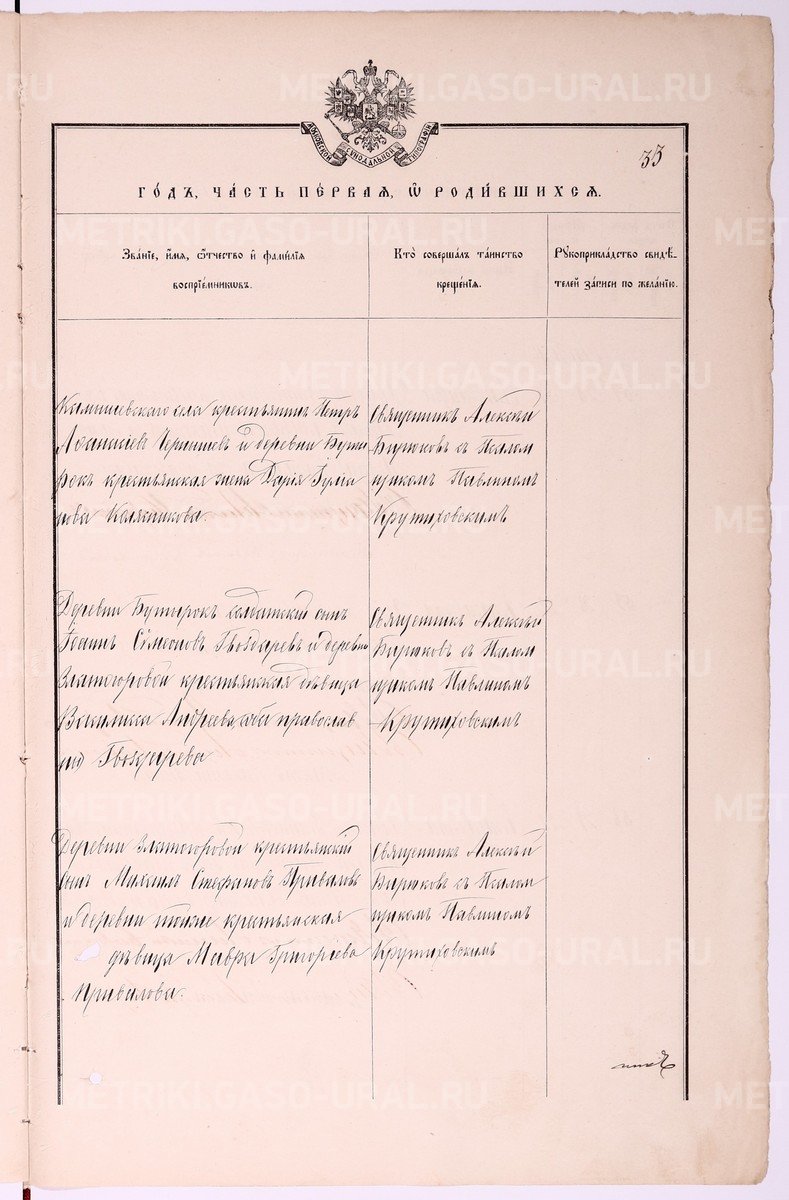 МОСКОВСКОЙ СѴНОДАЛЬНОЙ ТИПОГРАФІИ
33
ГО́ДЪ, ЧА́СТЬ ПЕ́РВАѦ, Ѡ҆ РОДИ́ВШИХСѦ.
Зва́нїе, и҆́мѧ, ѻ҆́тчество и҆ фами́лїѧ
воспрїе́мникѡвъ.
Кто̀ соверша́лъ та́инство
креще́нїѧ.
Рꙋкоприкла́дство свидѣ́-
телей за́писи по жела́нїю.
Камышевскаго села крестьянинъ Петръ
Аѳанасіевъ Чернышевъ и деревни Буты
рокъ крестьянская жена Дарія
Калякникова.
Священникъ Алексѣй
Бирюковъ съ Псалом
щикомъ Павлиномъ
Крутиховскимъ
Деревни Бутырокъ солдатскій сынъ
Іоаннъ Симеоновъ Гвоздаревъ и деревни
Златогоровой крестьянская дѣвица
Василиса Андреева, оба православ
ные Гвоздарева
Священникъ Алексѣй
Бирюковъ съ Псалом
щикомъ Павлиномъ
Крутиховскимъ
Деревни Златогоровой крестьянскій
сынъ Михаилъ Стефановъ Приваловъ
и деревни тойже крестьянская
дѣвица Мавра Григоріева
Привалова.
Священникъ Алексѣй
Бирюковъ съ Псалом
щикомъ Павлиномъ
Крутиховскимъ
METRIKI.GASO-URAL.RU